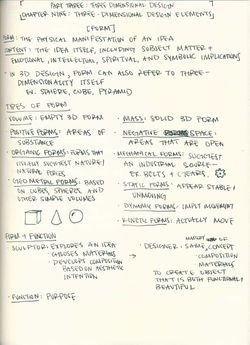 [PART THREE: THREE DIMENSIONAL DESIGN
CHAPTER NINE: THREE-DIMENSIONAL DESIGN ELEMENTS]
[FORM]
FORM: THE PHYSICAL MANIFESTATION OF AN IDEA
CONTENT: THE IDEA ITSELF, INCLUDING SUBJECT MATTER +
EMOTIONAL, INTELLECTUAL, SPIRITUAL, AND SYMBOLIC IMPLICATIONS
• IN 3D DESIGN, FORM CAN ALSO REFER TO THREE-
DIMENSIONALITY ITSELF
EX. SPHERE, CUBE, PYRAMID
TYPES OF FORM
• VOLUME: EMPTY 3D FORM
• POSITIVE FORMS: AREAS OF
SUBSTANCE
• ORGANIC FORMS: FORMS THAT
VISUALLY SUGGEST NATURE/
NATURAL FORCES
• GEOMETRIC FORMS: BASED
ON CUBES, SPHERES, AND
OTHER SIMPLE VOLUMES
• MASS: SOLID 3D FORM
• NEGATIVE SPACE:
AREAS THAT ARE OPEN
• MECHANICAL FORMS: SUGGEST
AN INDUSTRIAL SOURCE
EX. BOLTS + GEARS
• STATIC FORMS: APPEAR STABLE/
UNMOVING
• DYNAMIC FORMS: IMPLY MOVEMENT
• KINETIC FORMS: ACTUALLY MOVE
FORM + FUNCTION
• SCULPTOR: EXPLORES AN IDEA
- CHOOSES MATERIALS
- DEVELOPS COMPOSITION
BASED ON AESTHETIC
INTENTION
• DESIGNER: SAME, CONCEPT
COMPOSITION
MATERIALS
TO CREATE OBJECT
THAT IS BOTH FUNCTIONAL +
BEAUTIFUL
• FUNCTION: PURPOSE